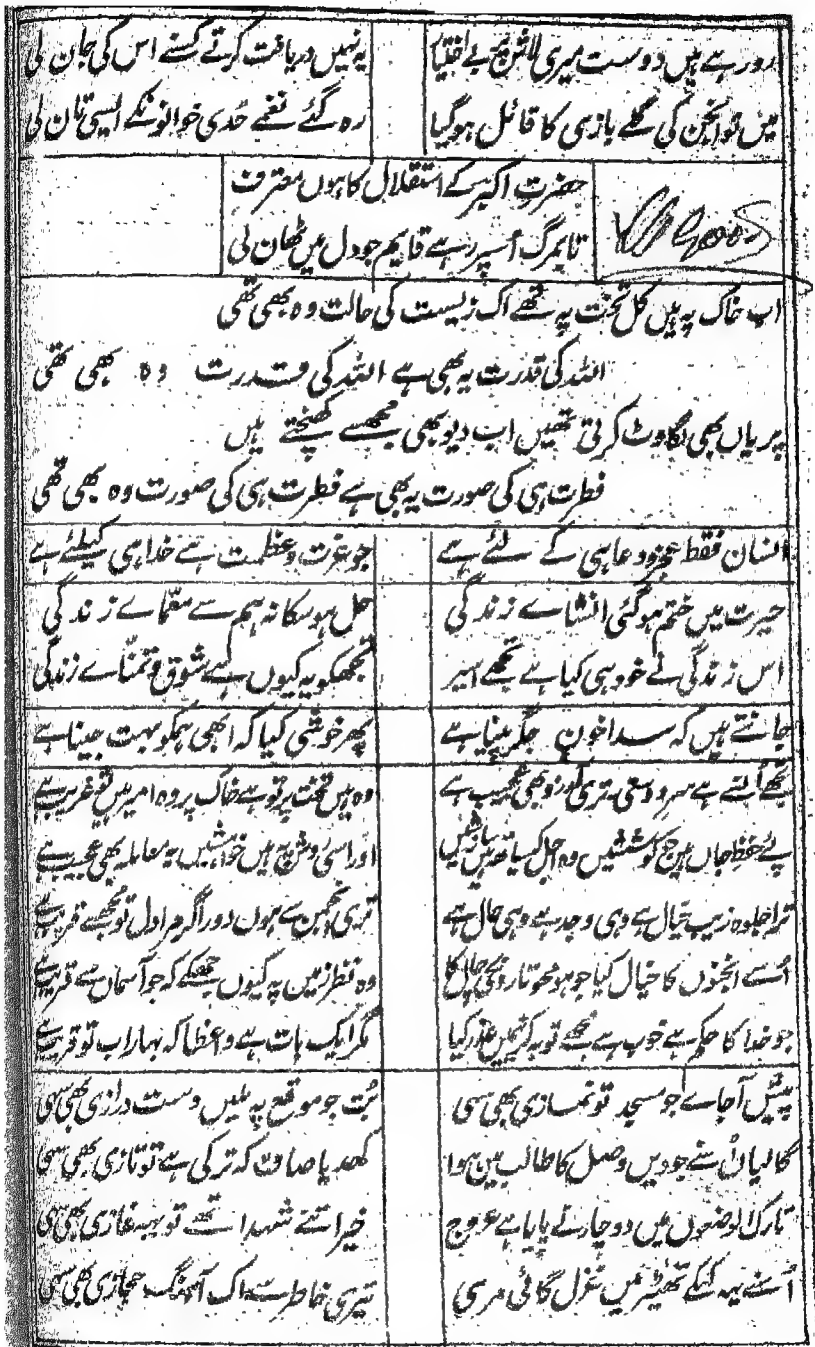 رو رہے ہیں دوست میری لاش پہ بے اختیار یہ نہیں دریافت کرتے کسنے اس کی جان لی
میں تو انجن کی گلے بازی کا قائل ہو گیا رہ گئے نغمے حُدی خوانونکے ایسی تان لی
حضرت اکبر کے استقلال کا ہوں معترف
تابمرگ اُسپر رہے قایم جو دل میں ٹھان لی
اب خاک پہ ہیں کل تخت پہ تھے اک زیست کی حالت وہ بھی تھی
اللہ کی قدرت یہ بھی ہے اللہ کی قدرت وہ بھی تھی
پریاں بھی لگاوٹ کرتی تھیں اب دیو بھی مجھسے کھنچتے ہیں
فطرت ہی کی صورت یہ بھی ہے فطرت ہی کی صورت وہ بھی تھی
انسان فقط عجز و دعا ہی کے لئے ہے جو عزت و عظمت ہے خدا ہی کیلئے ہے
حیرت میں ختم ہو گئی انشاے زندگی حل ہو سکا نہ ہم سے معمّاے زندگی
اس زندگی نے خود ہی کیا ہے تجھے اسیر تجھکو یہ کیوں ہے شوق و تمنّاے زندگی
جانتے ہیں کہ سدا خون جگر پینا ہے پھر خوشی کیا کہ ابھی ہمکو بہت جینا ہے
تجھے اُنسے ہے سر دوستی تری آرزو بھی عجیب ہے وہ ہیں تخت پر تو ہے خاک پر وہ امیر ہیں تو غریب ہے
پئے حفظ جاں ہیں جو کوششیں وہ اجل کیساتھ ہیں سازشیں اور اسی روش پہ ہیں خواہشیں یہ معاملہ بھی عجیب ہے
ترا جلوہ زیب خیال ہے وہی وجد ہے وہی حال ہے تری انجمن سے ہوں دور اگر مرا دل تو مجھسے قریب ہے
اُسے انجنوں کا خیال کیا جو ہو محو تارونکی چال کا وہ نظر زمین پہ کیوں جھکے کہ جو آسماں سے قریب ہے
جو خدا کا حکم ہے خوب ہے مجھے توبہ کرنیمیں عذر کیا مگر ایک بات ہے واعظا کہ بہار اب تو قریب ہے
پیش آجاے جو مسجد تو نمازی بھی سہی بُت جو موقع پہ ملیں دست درازی بھی سہی
گالیاں اُسنے جو دیں وصل کا طالب میں ہوا کھدیا صاف کہ ترکی ہے تو تازی بھی سہی
تارک الوضعوں میں دو چار نے پایا ہے عروج خیر اتنے شہدا تھے تو یہ غازی بھی سہی
اُسنے یہ کہکے تھیٹر میں غزل گائی مری تیری خاطر سے اک آہنگ حجازی بھی سہی